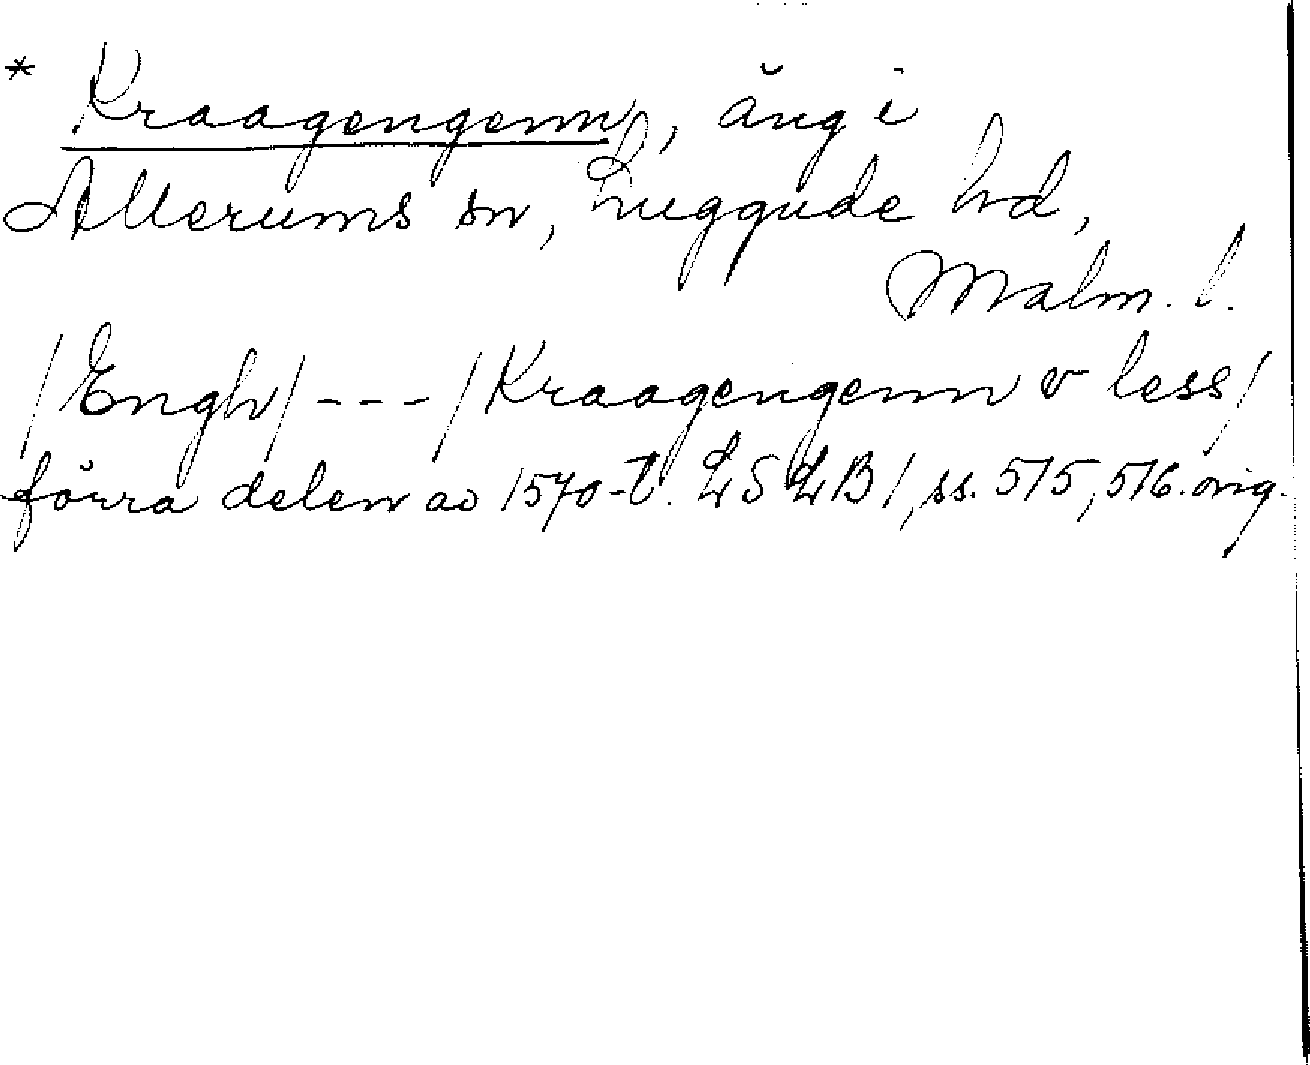 * Kraagengenn, äng i
Allerums sn, Luggude hd,
Malm. l.
/Engh/ --- /Kraagengenn v less/
förra delen av 1570-t. LSLB 1, ss. 515, 516. orig.